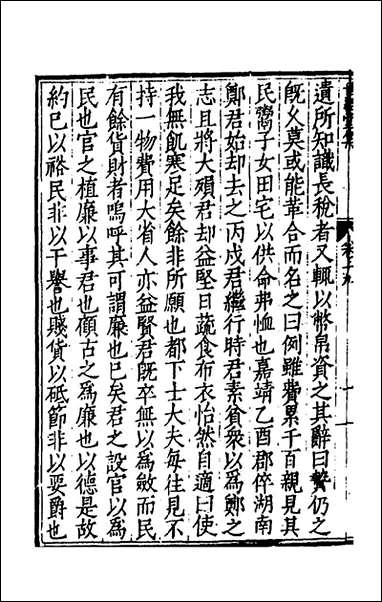 遺所知識長稅者又輒以幣帛資之其辭曰贄仍之
旣乆莫或能革合而名之曰例雖費累千百親見其
民鬻子女田宅以供命弗恤也嘉靖乙酉郡倅湖南
鄭君始却去之丙戌君繼行時君素貧衆以爲鄭之
志且將大殞君却益堅日蔬食布衣怡然自適曰使
我無飢寒足矣餘非所願也都下士大夫每往見不
持一物費用大省人亦益賢君旣卒無以爲斂而民
有餘貨財者嗚呼其可謂廉也已矣君之設官以爲
民也官之植廉以事君也顧古之爲廉也以德是故
約已以裕民非以干譽也賤貨以砥節非以要爵也